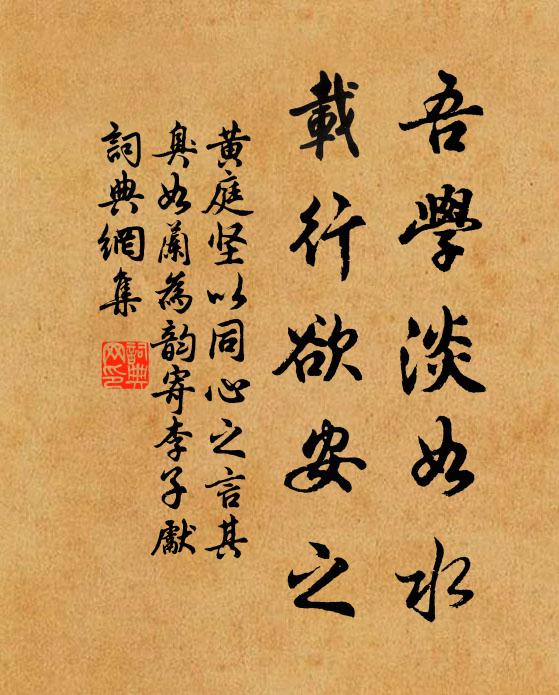 吾學淡如水
載行欲安之
黄庭坚以同心之言其
臭如蘭為韵寄李子獻
詞典網集
詞典
网印